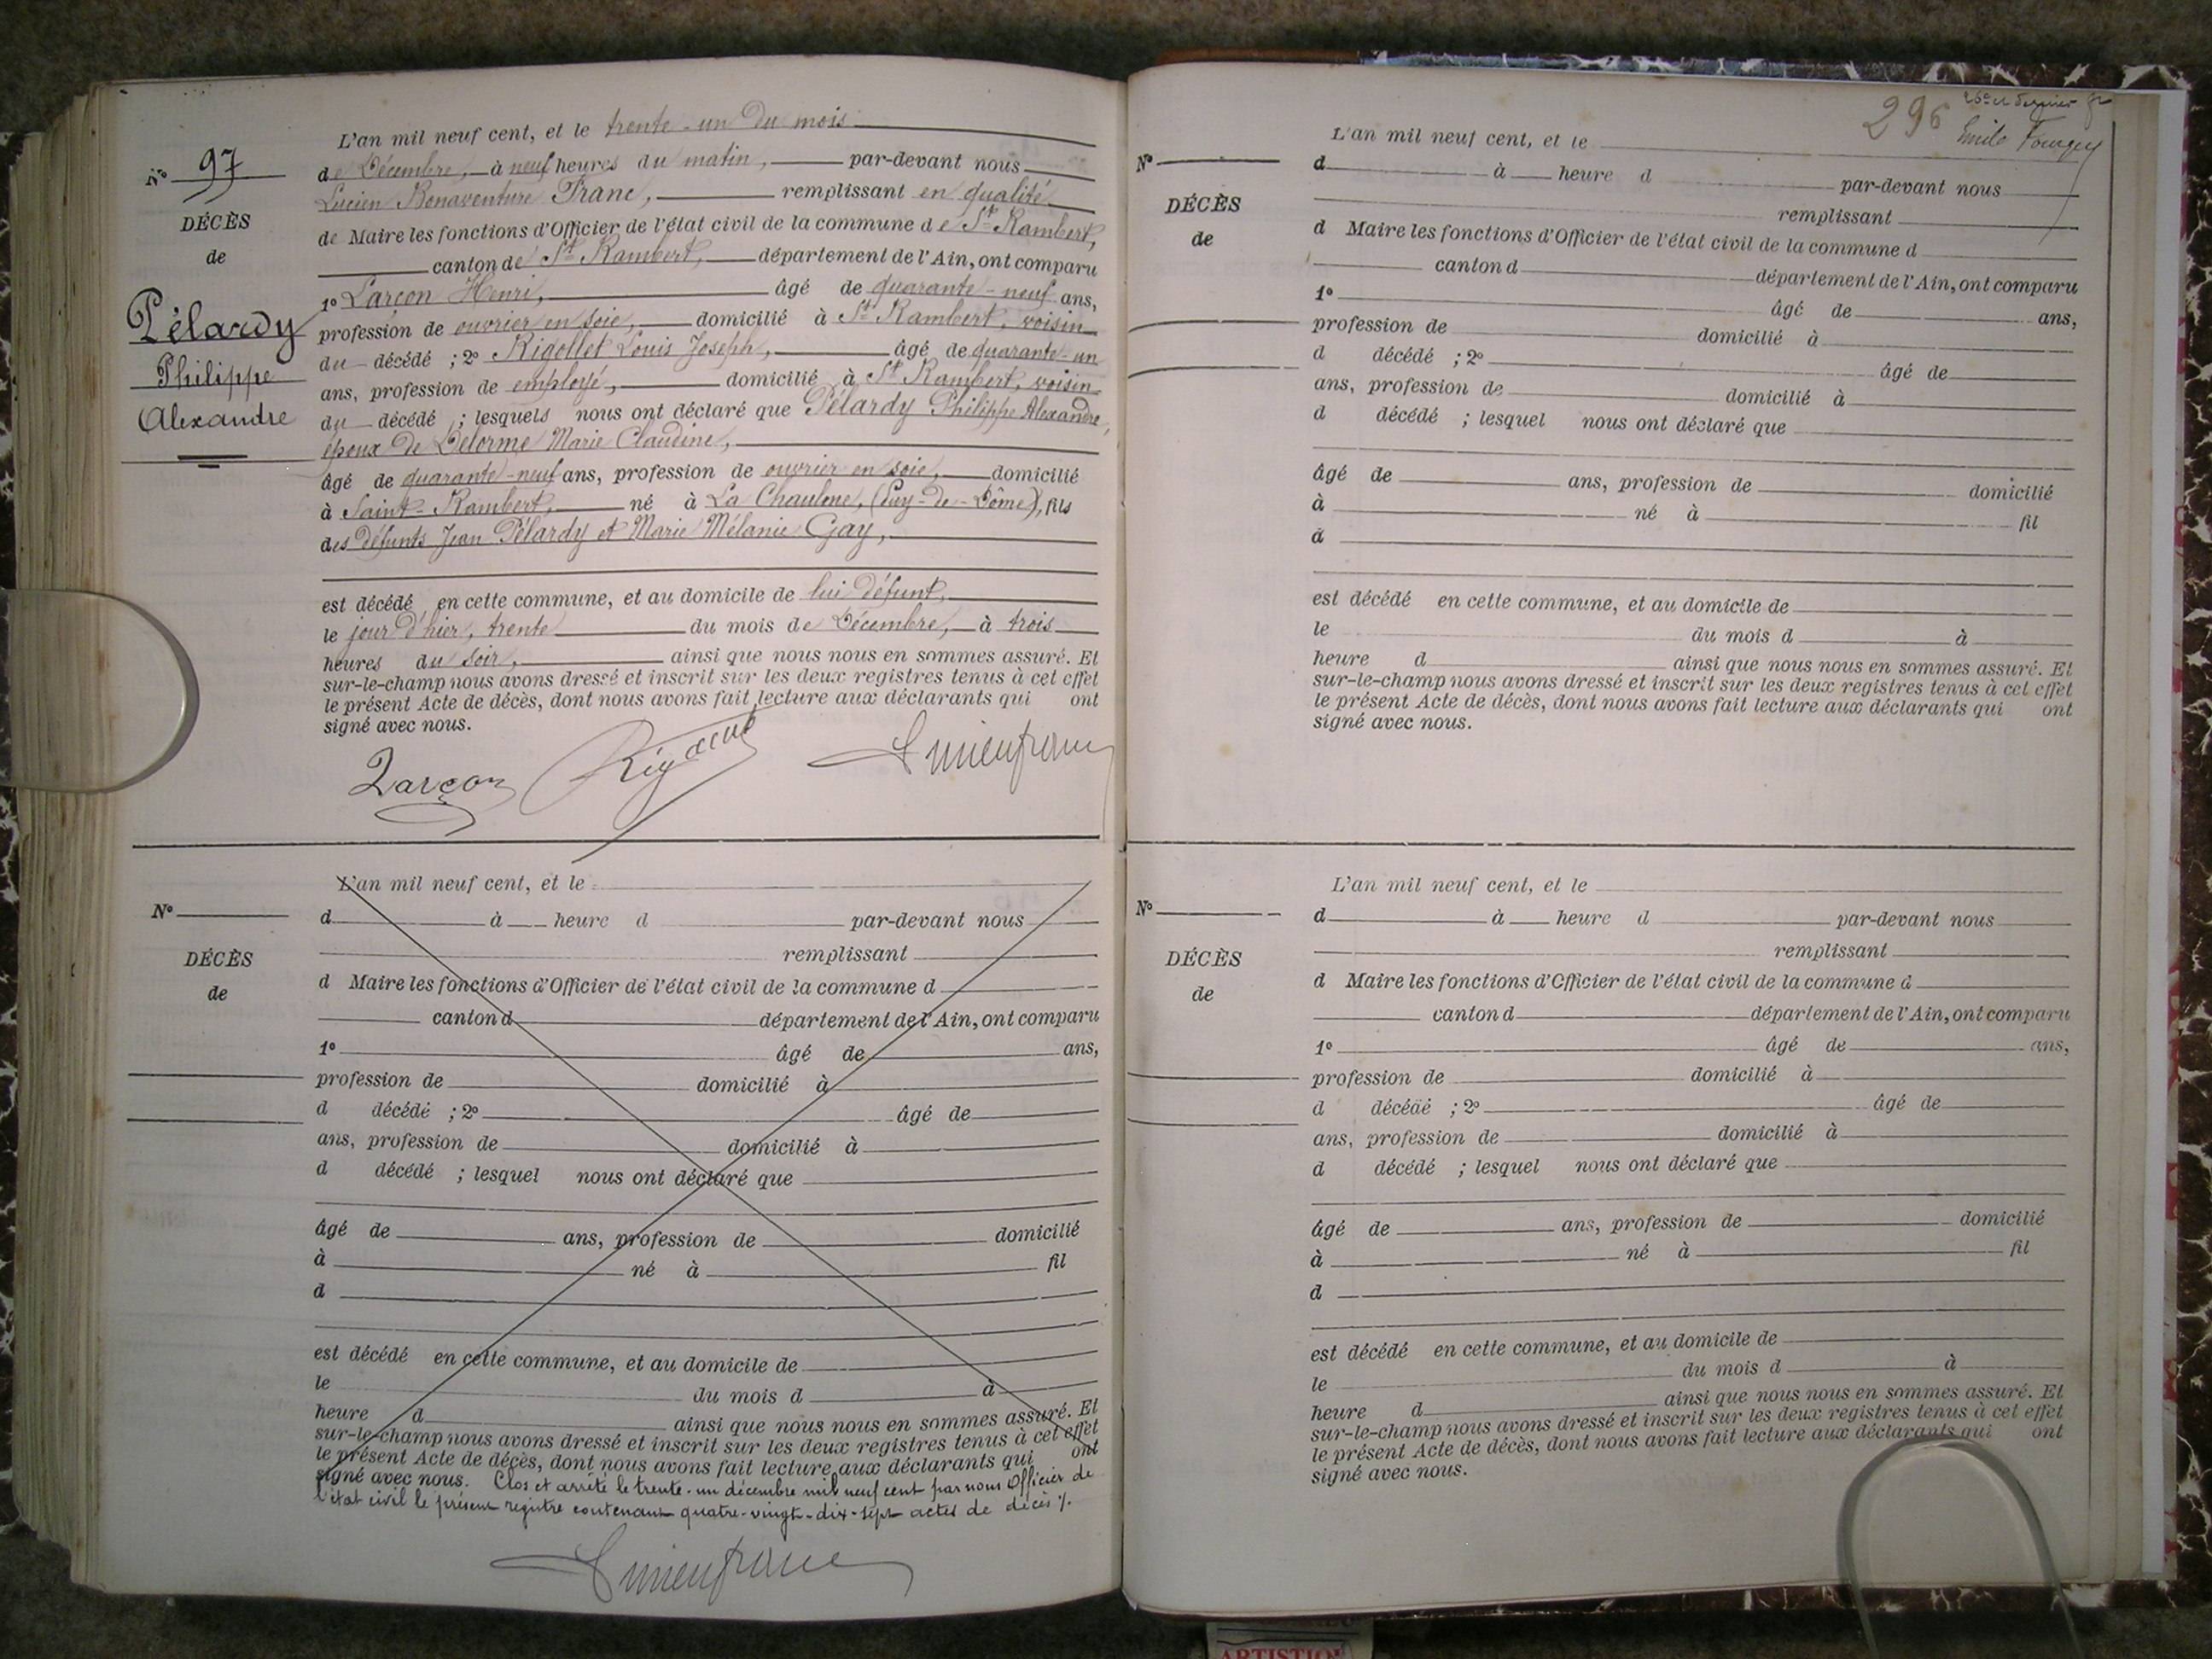 N° 97
DÉCÈS
de
Pélardy
Philippe
Alexandre
L'an mil neuf cent, et le trente-un du mois
de Décembre, à neuf heures du matin, par-devant nous
Lucien Bonaventure Franc, remplissant en qualité
de Maire les fonctions d'Officier de l'état civil de la commune de St Rambert,
canton de St Rambert, département de l'Ain, ont comparu
1° Larçon Henri, âgé de quarante-neuf ans,
profession de ouvrier en soie, domicilié à St Rambert, voisin
du décédé ; 2° Rigollet Louis Joseph, âgé de quarante-un
ans, profession de employé, domicilié à St Rambert, voisin
du décédé ; lesquels nous ont déclaré que Pélardy Philippe Alexandre,
époux de Delorme Marie Claudine,
âgé de quarante-neuf ans, profession de ouvrier en soie, domicilié
à Saint-Rambert, né à La Chaulme, (Puy-de-Dôme), fils
des défunts Jean Pélardy et Marie Mélanie Gay,
est décédé en cette commune, et au domicile de lui défunt,
le jour d'hier, trente du mois de Décembre, à trois
heures du soir, ainsi que nous nous en sommes assuré. Et
sur-le-champ nous avons dressé et inscrit sur les deux registres tenus à cet effet
le présent Acte de décès, dont nous avons fait lecture aux déclarants qui ont
signé avec nous.
Larçon Lucien Franc
N°
DÉCÈS
de
L'an mil neuf cent, et le
d à heure d par-devant nous
remplissant
d Maire les fonctions d'Officier de l'état civil de la commune d
canton d département de l'Ain, ont comparu
1° âgé de ans,
profession de domicilié à
d décédé ; 2° âgé de
ans, profession de domicilié à
d décédé ; lesquel nous ont déclaré que
âgé de ans, profession de domicilié
à né à fil
d
est décédé en cette commune, et au domicile de
le du mois d à
heure d ainsi que nous nous en sommes assuré. Et
sur-le-champ nous avons dressé et inscrit sur les deux registres tenus à cet effet
le présent Acte de décès, dont nous avons fait lecture aux déclarants qui ont
signé avec nous. Clos et arrêté le trente-un décembre mil neuf cent par nous Officier de
l'état civil le présent registre contenant quatre-vingt-dix-sept actes de décès ./.
Lucien Franc
296
Emile
N°
DÉCÈS
de
L'an mil neuf cent, et le
d à heure d par-devant nous
remplissant
d Maire les fonctions d'Officier de l'état civil de la commune d
canton d département de l'Ain, ont comparu
1° âgé de ans,
profession de domicilié à
d décédé ; 2° âgé de
ans, profession de domicilié à
d décédé ; lesquel nous ont déclaré que
âgé de ans, profession de domicilié
à né à fil
d
est décédé en cette commune, et au domicile de
le du mois d à
heure d ainsi que nous nous en sommes assuré. Et
sur-le-champ nous avons dressé et inscrit sur les deux registres tenus à cet effet
le présent Acte de décès, dont nous avons fait lecture aux déclarants qui ont
signé avec nous.
N°
DÉCÈS
de
L'an mil neuf cent, et le
d à heure d par-devant nous
remplissant
d Maire les fonctions d'Officier de l'état civil de la commune d
canton d département de l'Ain, ont comparu
1° âgé de ans,
profession de domicilié à
d décédé ; 2° âgé de
ans, profession de domicilié à
d décédé ; lesquel nous ont déclaré que
âgé de ans, profession de domicilié
à né à fil
d
est décédé en cette commune, et au domicile de
le du mois d à
heure d ainsi que nous nous en sommes assuré. Et
sur-le-champ nous avons dressé et inscrit sur les deux registres tenus à cet effet
le présent Acte de décès, dont nous avons fait lecture aux déclarants qui ont
signé avec nous.